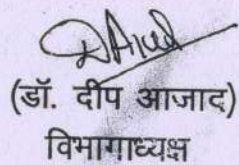 (डॉ. दीप आजाद)
विभागाध्यक्ष